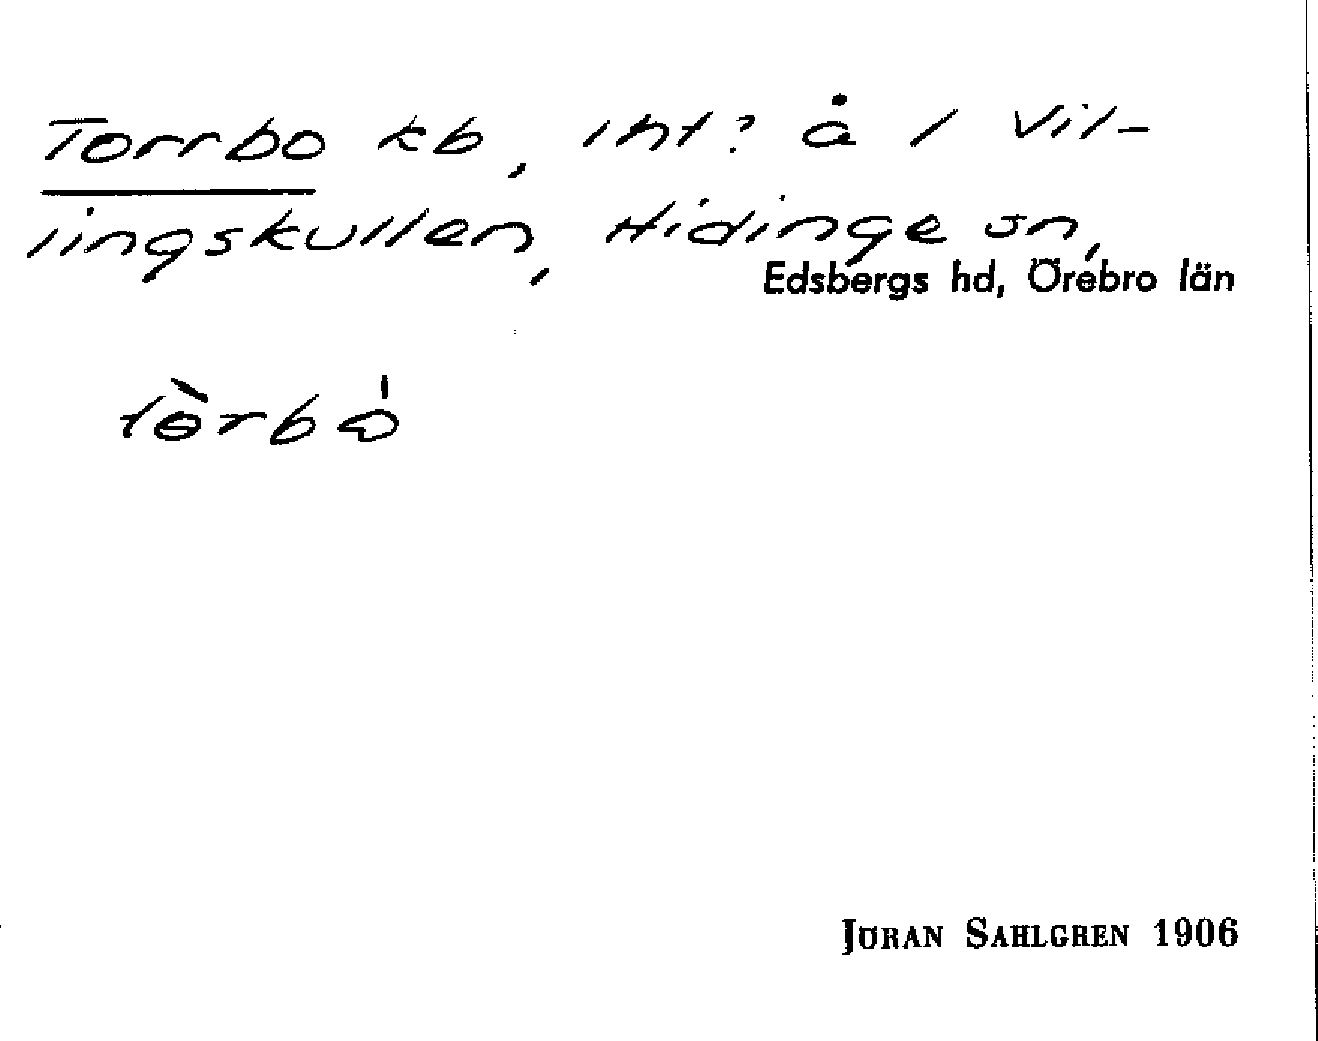 Torrbo kb, int? å 1 Vil-
lingskullen, Hidinge sn,
Edsbergs hd, Örebro län
JÖRAN SAHLGREN 1906